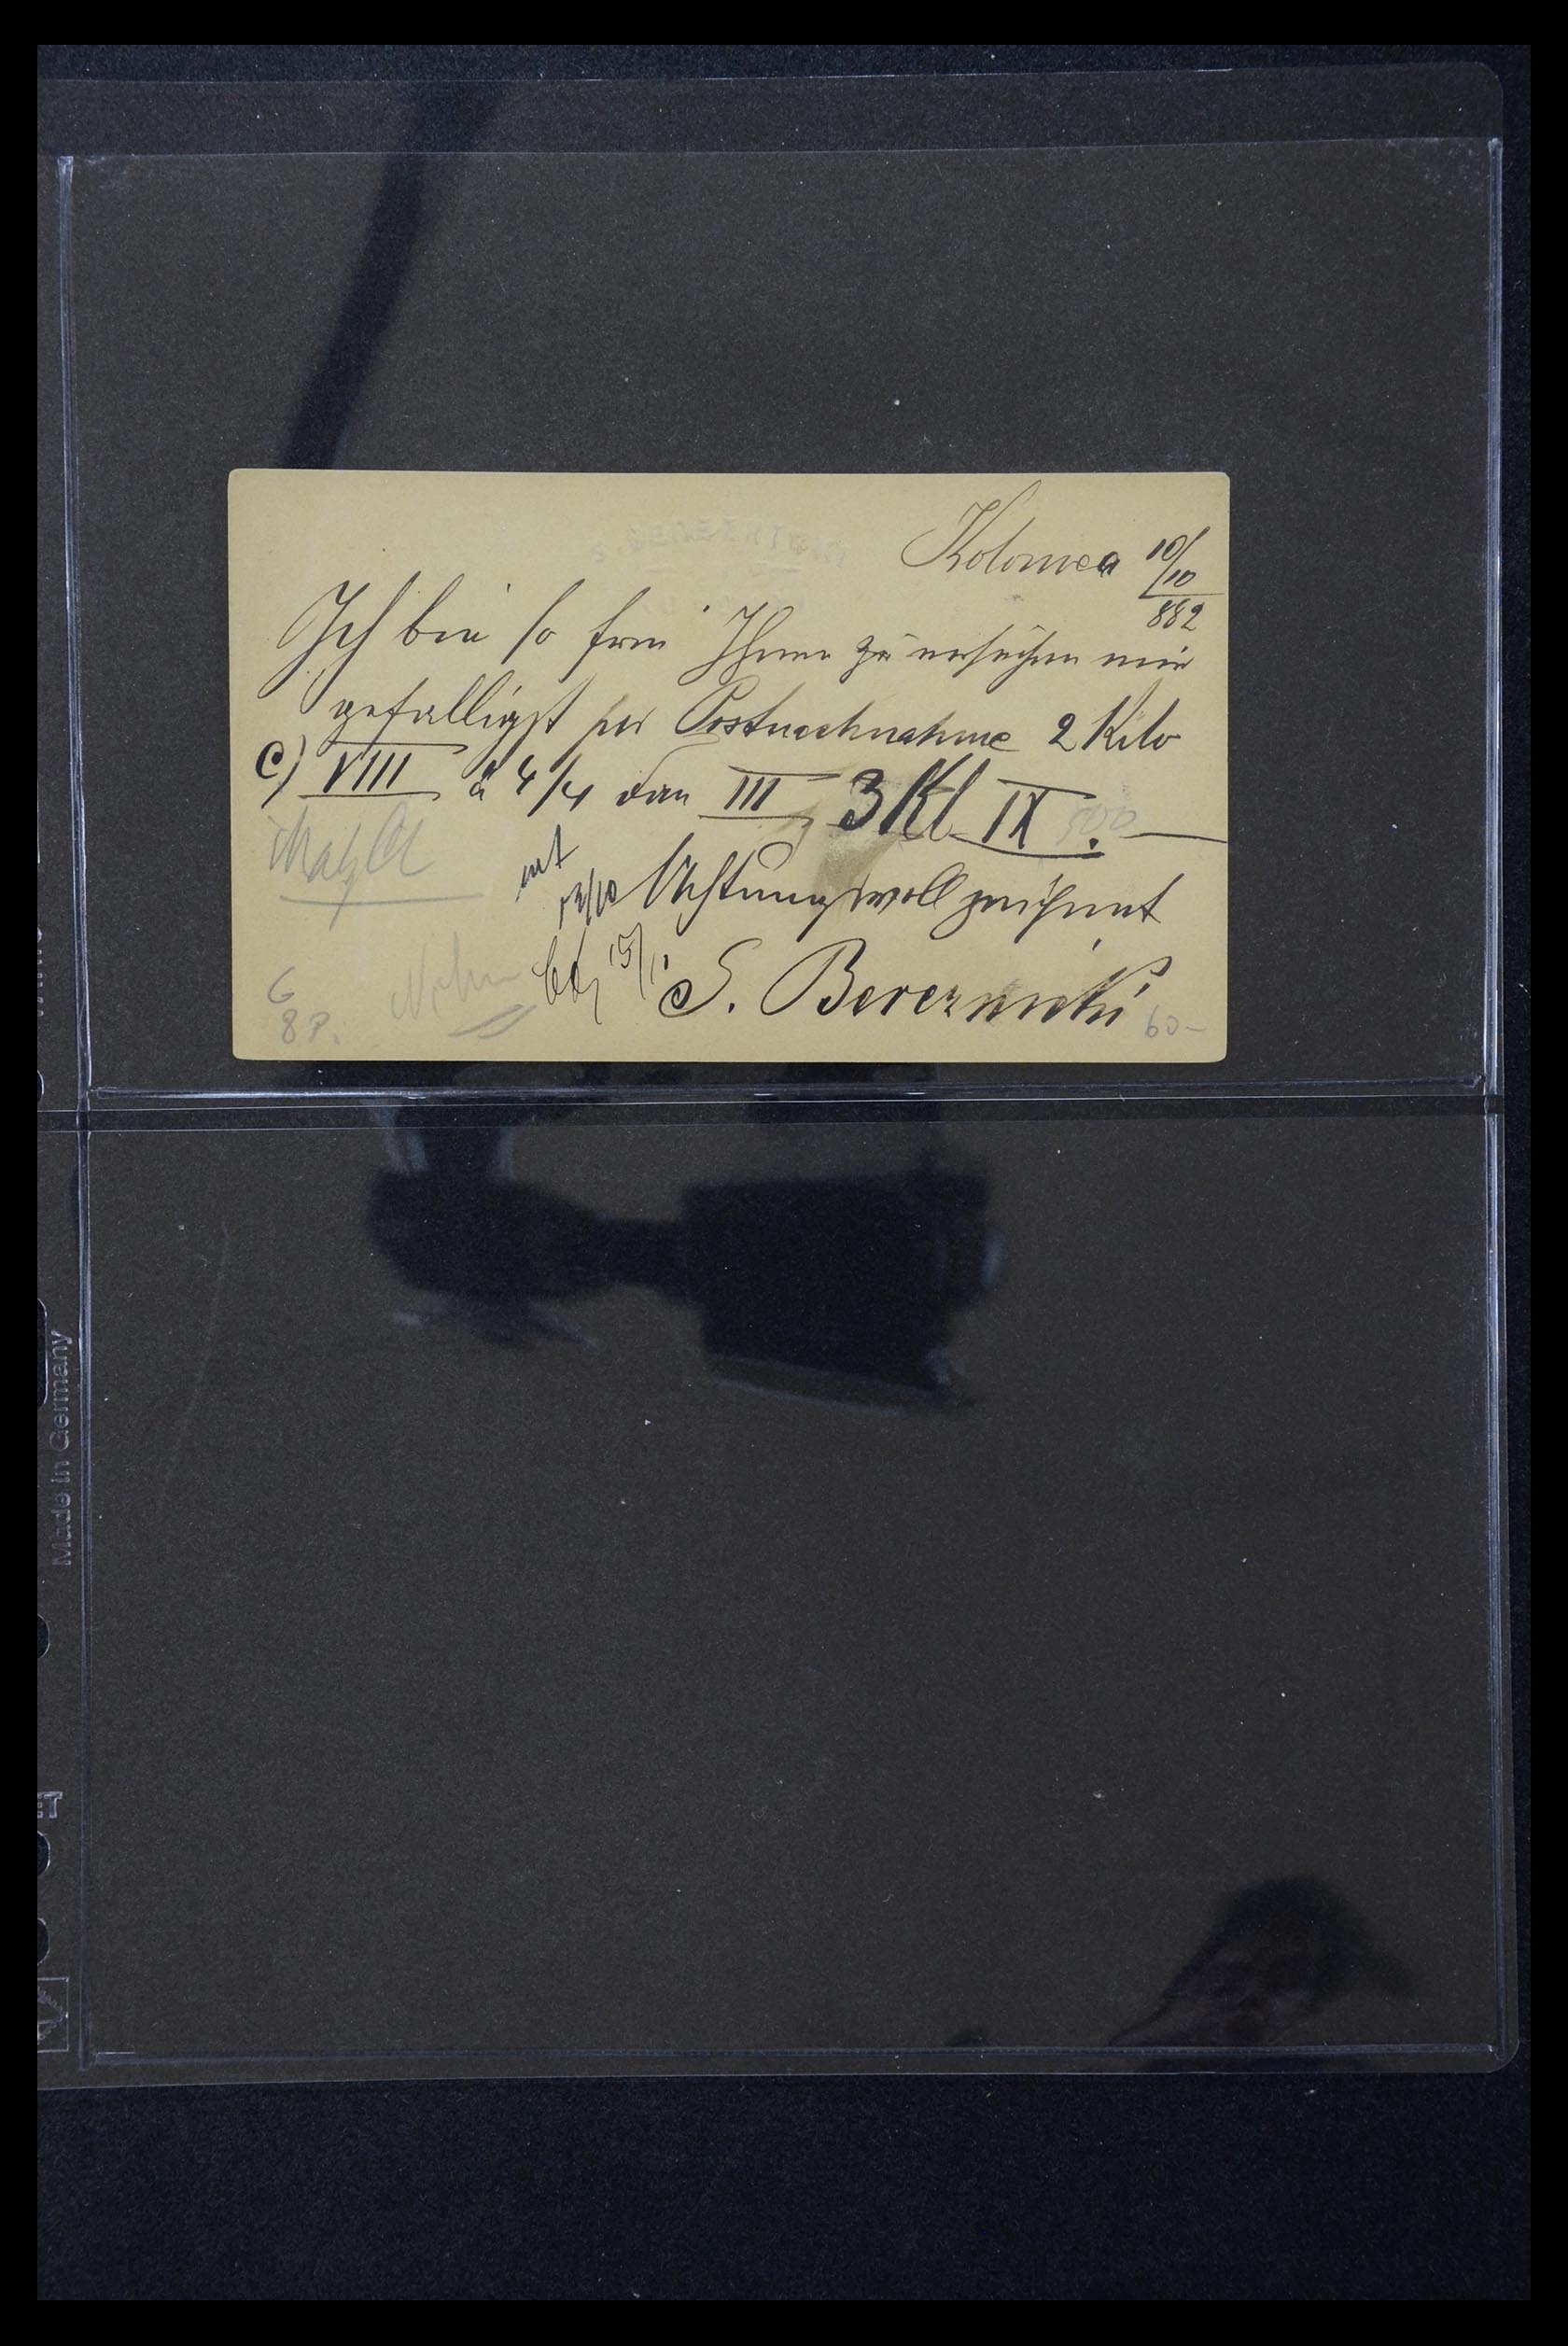 Kolomea 10/10
882
Ich bin so frei Ihnen zu ersuchen mir
gefälligst per Postnachnahme 2 Kilo
C) VIII à 4/4 dan III 3 Kl IX
500
Achtungsvoll zeichnet
15/
S.
G
8 P.
60-
Made in Germany